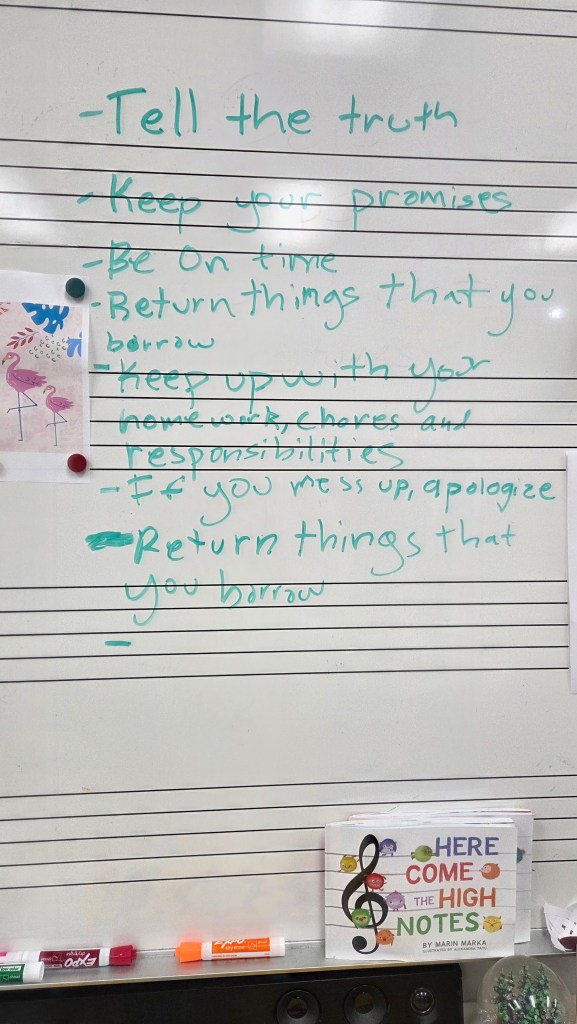 - Tell the truth
- Keep your promises
- Be On time
- Return things that you
borrow
- Keep up with your
homework, chores and
responsibilities
- If you mess up, apologize
- Return things that
you borrow
-
HERE
COME
THE HIGH
NOTES
BY MARIN MARKA
EXPO
EXPO